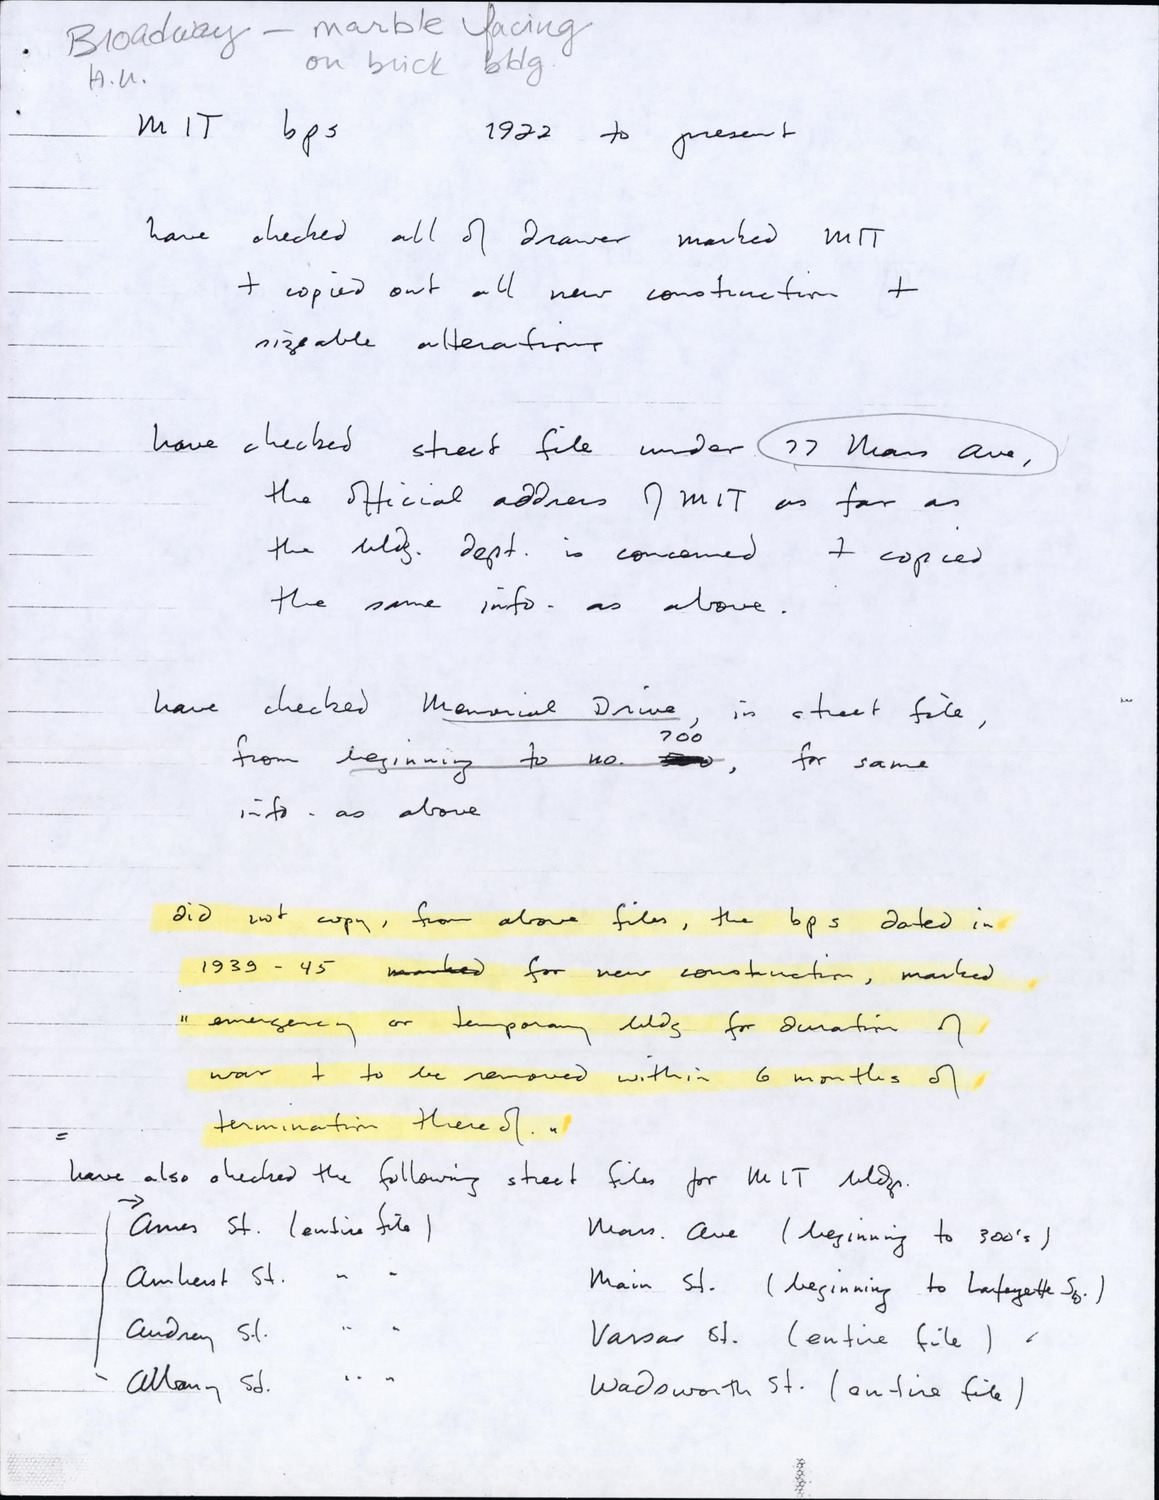 Broadway — marble facing
H.U. on brick bldg.
MIT bps 1922 to present
have checked all of drawer marked MIT
+ copied out all new construction +
sizeable alterations
have checked street file under 77 Mass Ave,
the official address of MIT as far as
the bldg. dept. is concerned + copied
the same info. as above.
have checked Memorial Drive, in street file,
700
from beginning to no. , for same
info. as above
did not copy, from above files, the bps dated in
1939-45 marked for new construction, marked
"emergency or temporary bldg for duration of
war + to be removed within 6 months of
termination thereof."
=
have also checked the following street files for MIT bldgs.
→
Ames St. (entire file) Mass. Ave (beginning to 300's)
Amherst St. " " Main St. (beginning to Lafayette Sq.)
Audrey St. " " Vassar St. (entire file)
Albany St. " " Wadsworth St. (entire file)